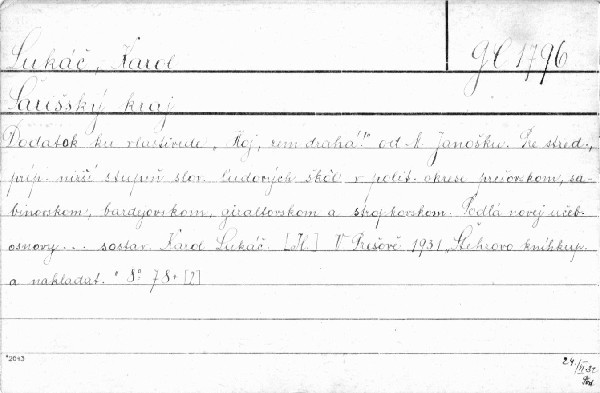 Lukáč, Karol
GC 1796
Šarišský kraj
Dodatok ku vlastivede „Hoj, zem drahá!" od K. Janošku. Pre stred.,
príp. nižší stupeň slov. ľudových škôl v polit. okrese prešovskom, sa-
binovskom, bardejovskom, giraltovskom a stropkovskom. Podľa novej učeb.
osnovy... sostav. Karol Lukáč. [Il.] V Prešově 1931, „Štehrovo kníhkup.
a nakladat." 8° 78+[2]
*2043
24/II 32